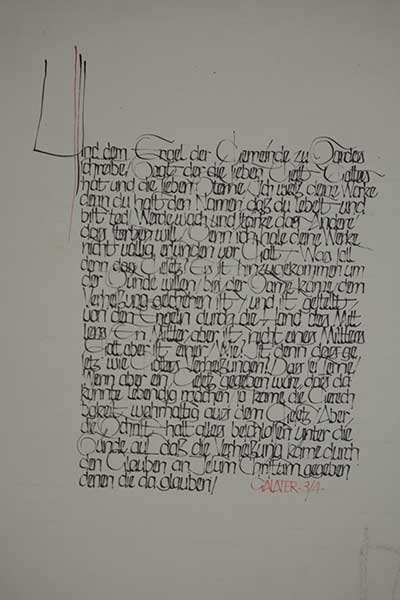 Und dem Engel der Gemeinde zu Sardes
schreibe/ Sagt der die sieben Geist Gottes
hat und die sieben Sterne/ Ich weiß deine Werke
denn du hast den Namen daß du lebst/ und
bist tod/ Werde wach und stärke das Andere
das sterben will/ Denn ich habe deine Werke
nicht völlig erfunden vor Gott/ Was soll
denn das Gesetz/ Es ist hinzugekommen um
der Sünde willen/ bis der Same käme dem
Verheißung geschehen ist/ und ist gestellt
von den Engeln durch die Hand des Mitt
lers/ Ein Mittler aber ist nicht eines Mittlers
Gott aber ist einer/ Wie/ Ist denn das Ge
setz wie Gottes Verheißungen/ Das sei ferne/
Wenn aber ein Gesetz gegeben wäre das da
könnte lebendig machen so käme die Gerech
tigkeit wahrhaftig aus dem Gesetz/ Aber
die Schrift hat alles beschlossen unter die
Sünde auf daß die Verheißung käme durch
den Glauben an Jesum Christum gegeben
denen die da glauben/ GALATER - 3/4 -